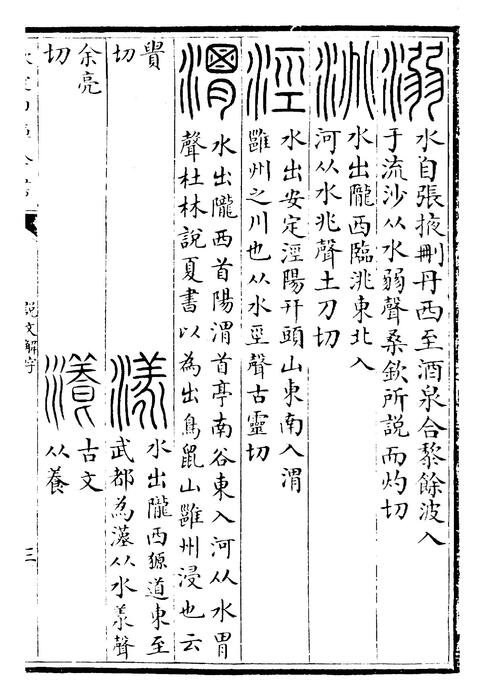 溺
水自張掖刪丹西至酒泉合黎餘波入
于流沙从水弱聲桑欽所說而灼切
洮
水出隴西臨洮東北入
河从水兆聲土刀切
涇
水出安定涇陽幵頭山東南入渭
雝州之川也从水巠聲古靈切
渭
水出隴西首陽渭首亭南谷東入河从水胃
聲杜林說夏書以為出鳥鼠山雝州浸也云
貴
切
漾
水出隴西獂道東至
武都為漢从水羕聲
余亮
切
瀁
古文
从養
說文解字
三